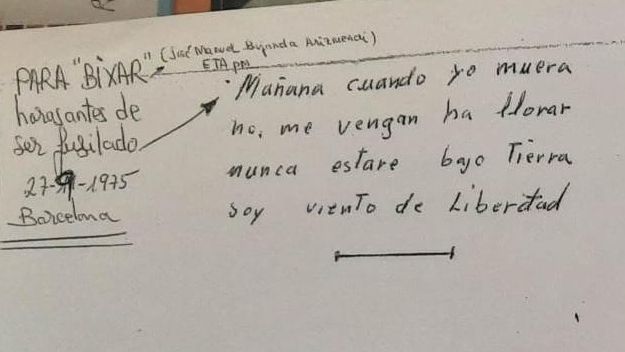 PARA "BIXAR" (José Manuel Bujanda Arizmendi)
ETA pm
horas antes de
ser fusilado
27-9-1975
Barcelona
Mañana cuando yo muera
no, me vengan ha llorar
nunca estare bajo Tierra
soy viento de Libertad